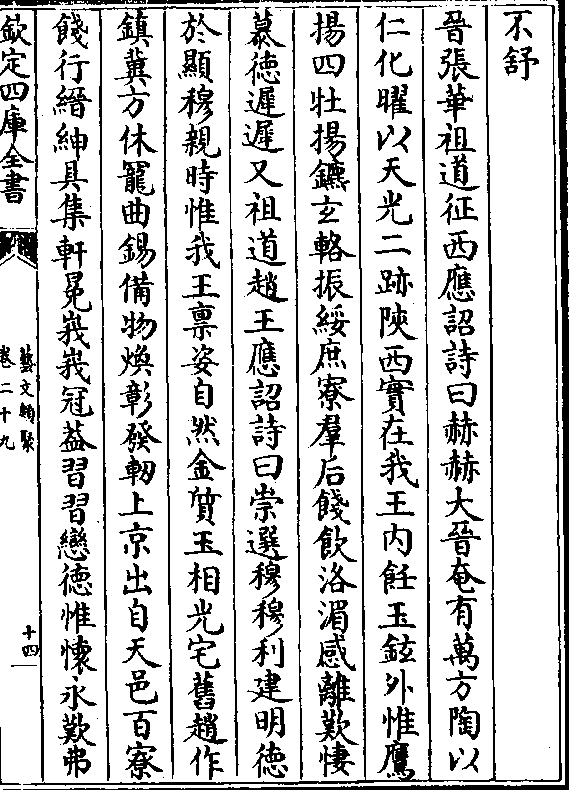 不舒
晉張華祖道征西應詔詩曰赫赫大晉奄有萬方陶以
仁化曜以天光二跡陝西實在我王内飪玉鉉外惟鷹
揚四牡揚鑣玄輅振綏庶寮羣后餞飲洛湄感離歎悽
慕德遲遲又祖道趙王應詔詩曰崇選穆穆利建明德
於顯穆親時惟我王禀姿自然金質玉相光宅舊趙作
鎮冀方休寵曲錫備物煥彰發軔上京出自天邑百寮
餞行縉紳具集軒冕峩峩冠葢習習戀德惟懷永歎弗
欽定四庫全書
藝文類聚
卷二十九
十四